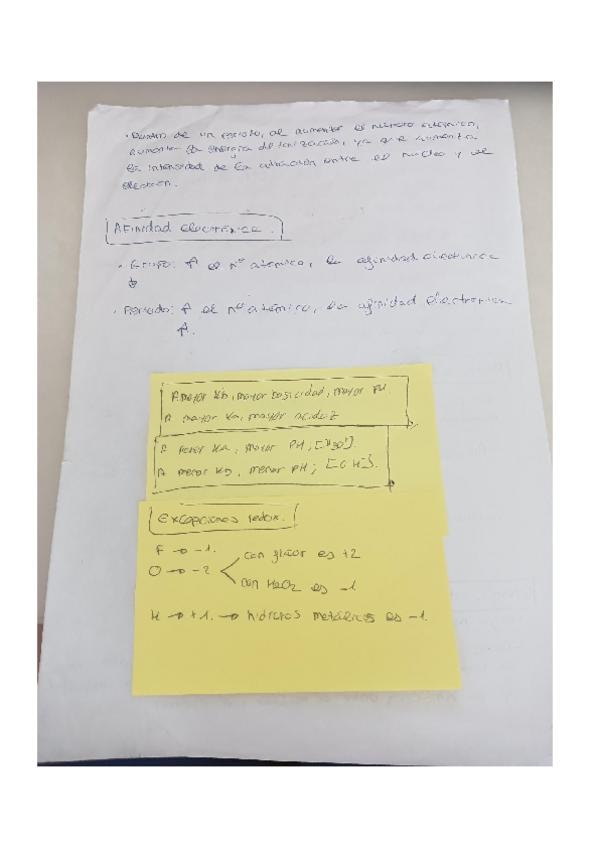 · Dentro de un periodo, al aumentar el número atómico,
aumenta la energía de ionización, ya que aumenta
la intensidad de la atracción entre el núcleo y el
electrón.
Afinidad electrónica.
· Grupo: ↑ el nº atómico, la afinidad electrónica
↓
· Periodo: ↑ el nº atómico, la afinidad electrónica
↑.
A mayor Kb, mayor basicidad, mayor pH.
A mayor Ka, mayor acidez
A menor Ka, mayor PH; [H3O+].
A menor Kb, menor pH; [OH-].
Excepciones redox.
F → -1.
O → -2
con flúor es +2
con H2O2 es -1
H → +1. → hidruros metálicos es -1.